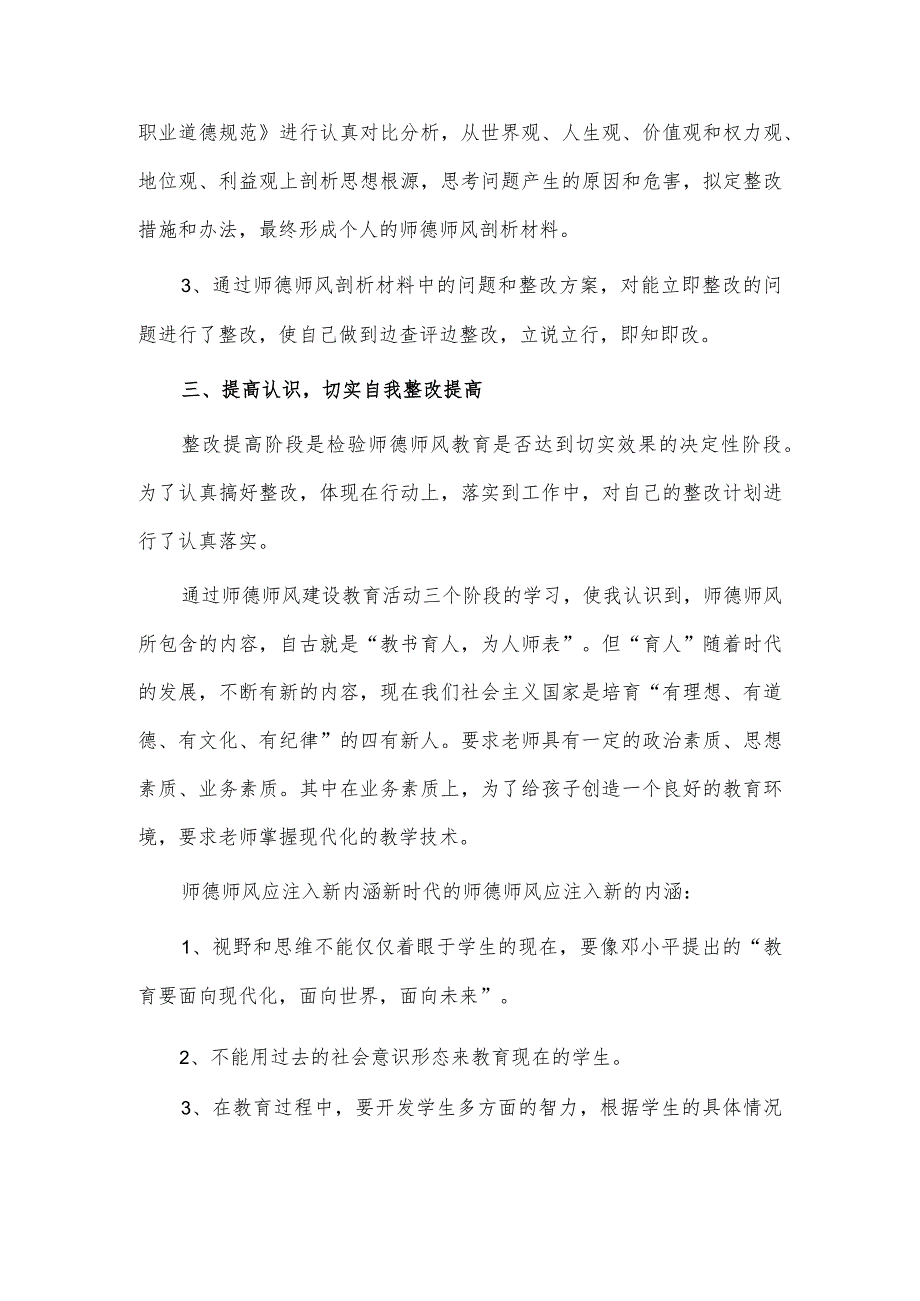 职业道德规范》进行认真对比分析，从世界观、人生观、价值观和权力观、
地位观、利益观上剖析思想根源，思考问题产生的原因和危害，拟定整改
措施和办法，最终形成个人的师德师风剖析材料。
3、通过师德师风剖析材料中的问题和整改方案，对能立即整改的问
题进行了整改，使自己做到边查评边整改，立说立行，即知即改。
三、提高认识，切实自我整改提高
整改提高阶段是检验师德师风教育是否达到切实效果的决定性阶段。
为了认真搞好整改，体现在行动上，落实到工作中，对自己的整改计划进
行了认真落实。
通过师德师风建设教育活动三个阶段的学习，使我认识到，师德师风
所包含的内容，自古就是“教书育人，为人师表”。但“育人”随着时代
的发展，不断有新的内容，现在我们社会主义国家是培育“有理想、有道
德、有文化、有纪律”的四有新人。要求老师具有一定的政治素质、思想
素质、业务素质。其中在业务素质上，为了给孩子创造一个良好的教育环
境，要求老师掌握现代化的教学技术。
师德师风应注入新内涵新时代的师德师风应注入新的内涵：
1、视野和思维不能仅仅着眼于学生的现在，要像邓小平提出的“教
育要面向现代化，面向世界，面向未来”。
2、不能用过去的社会意识形态来教育现在的学生。
3、在教育过程中，要开发学生多方面的智力，根据学生的具体情况